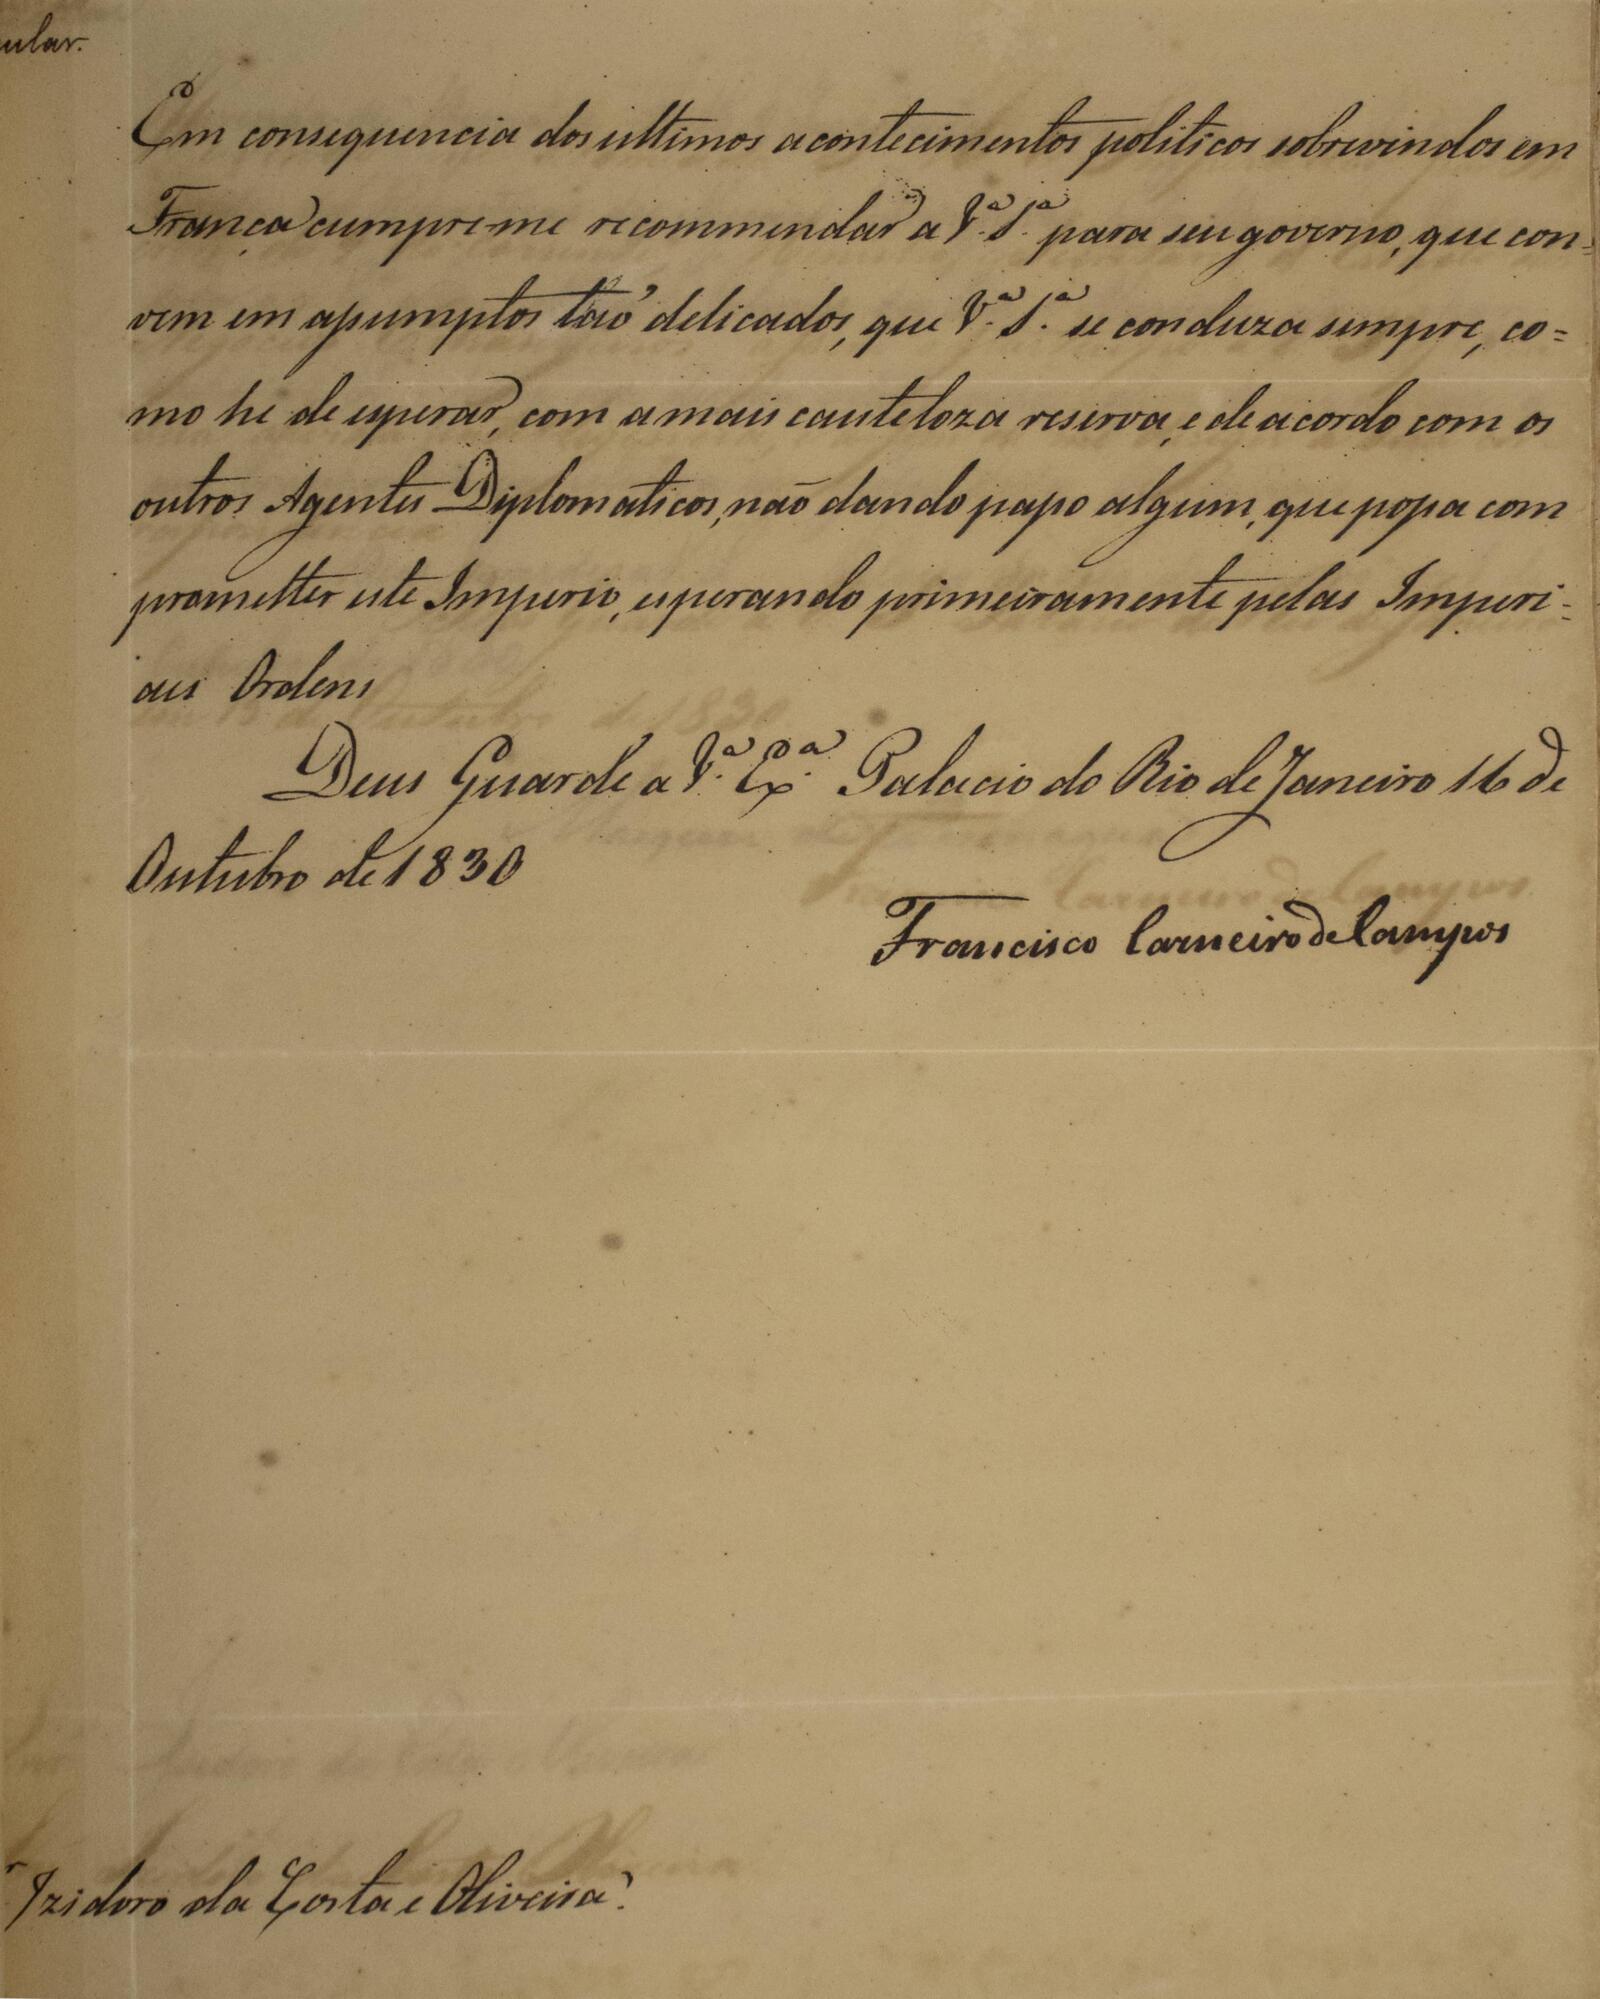 ular.
Em consequencia dos ultimos acontecimentos politicos sobrevindos em
França cumpre-me recommendar a V.ª S.ª para seu governo, que con=
vem em assumptos taõ delicados, que V.ª S.ª se conduza sempre, co=
mo he de esperar, com a mais cauteloza reserva, e de acordo com os
outros Agentes Diplomaticos, não dando passo algum, que possa com
prometter este Imperio, esperando primeiramente pelas Imperi=
aes Ordens
Deus Guarde a V.ª Ex.ª Palacio do Rio de Janeiro 16 de
Outubro de 1830
Francisco Carneiro de Campos
Izidoro da Costa e Oliveira.